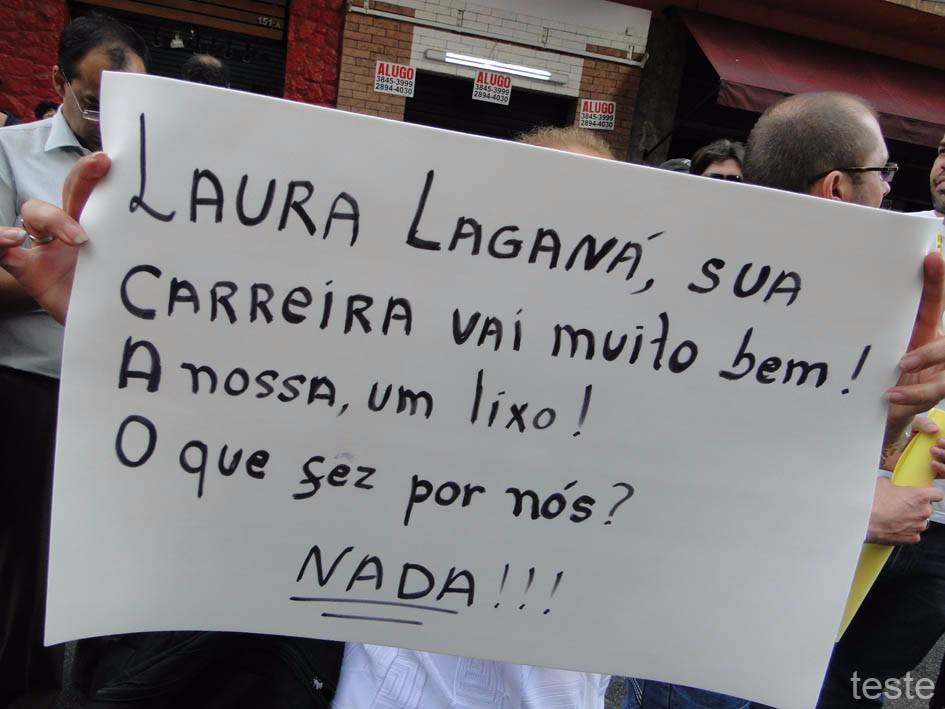 151-A
ALUGO
3845-3999
2894-4030
ALUGO
3845-3999
2894-4030
ALUGO
3845-3999
2894-4030
LAURA LAGANÁ, SUA
CARREIRA VAI muito bem!
A nossa, um lixo!
O que fêz por nós?
NADA!!!
teste